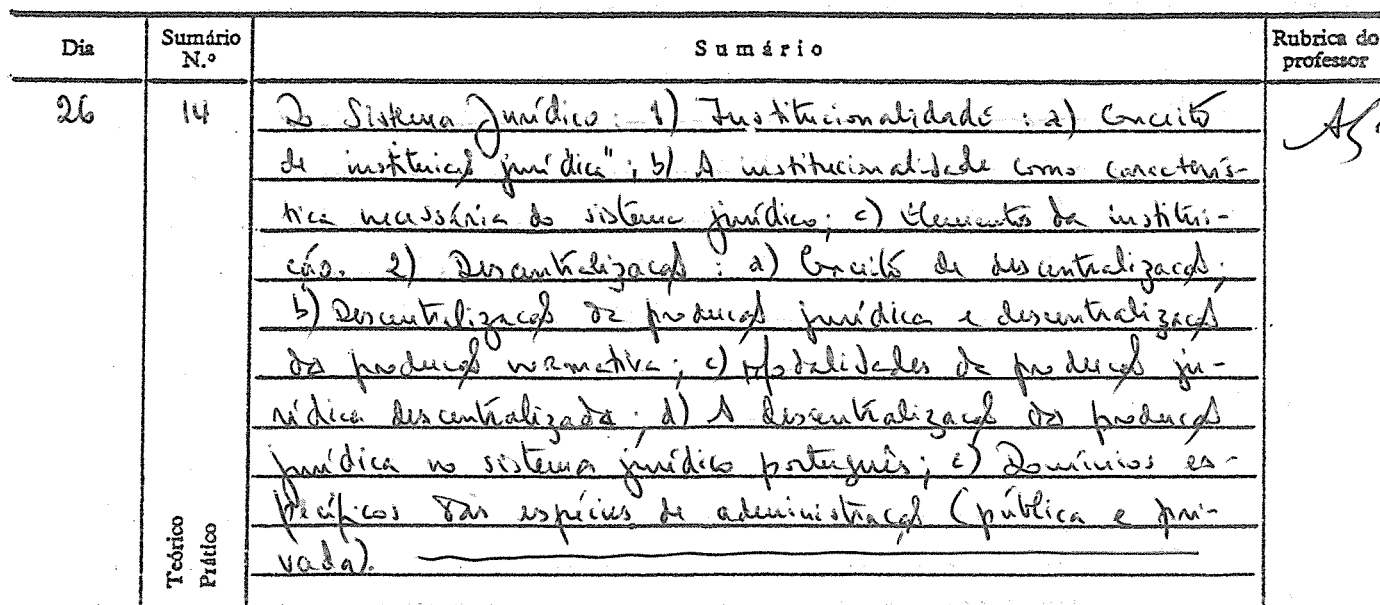 Dia
Sumário N.º
Sumário
Rubrica do professor
26
14
O Sistema Jurídico: 1) Institucionalidade: a) Conceito
de instituição jurídica"; b) A institucionalidade como caracterís-
tica necessária do sistema jurídico; c) Elementos da institui-
ção. 2) Descentralização: a) Conceito de descentralização;
b) Descentralização da produção jurídica e descentralização
da produção normativa; c) Modalidades da produção ju-
rídica descentralizada; d) A descentralização da produção
jurídica no sistema jurídico português; e) Domínios es-
pecíficos das espécies de administração (pública e pri-
vada).
Teórico
Prático